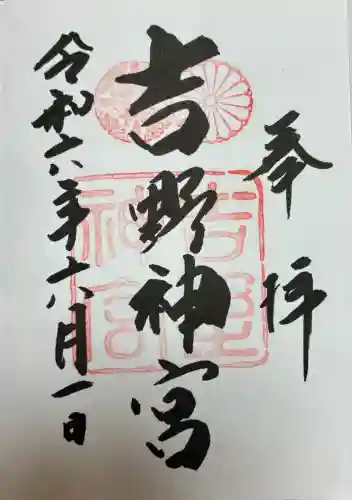 奉拝
吉野神宮
令和六年十八月一日
吉野
神宮